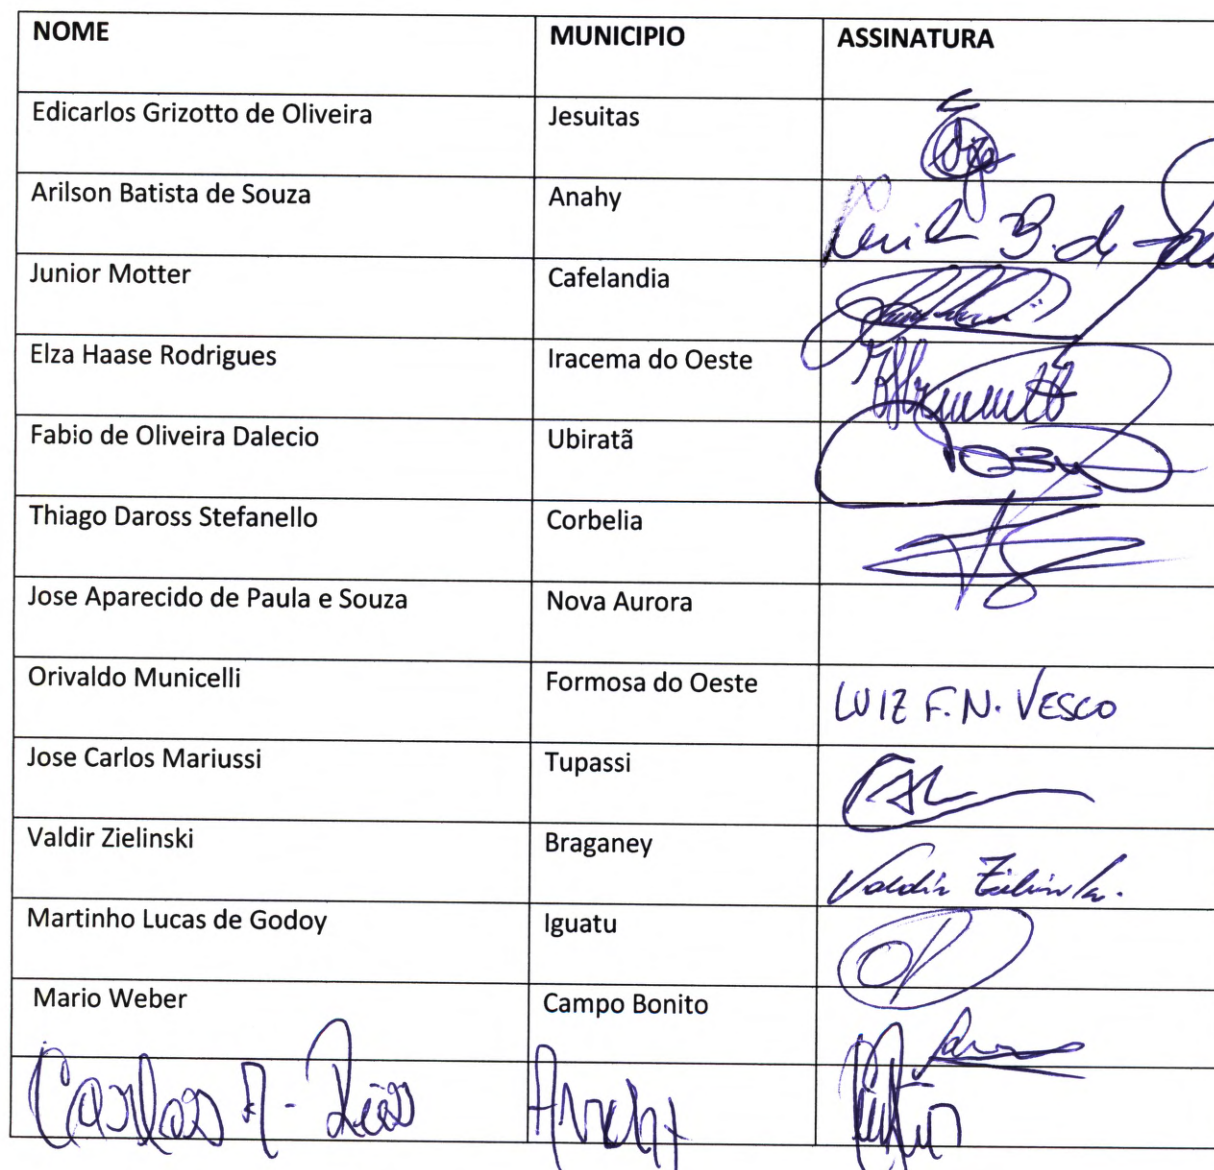 NOME MUNICIPIO ASSINATURA
Edicarlos Grizotto de Oliveira Jesuitas
Arilson Batista de Souza Anahy
B. de
Junior Motter Cafelandia
Elza Haase Rodrigues Iracema do Oeste
Fabio de Oliveira Dalecio Ubiratã
Thiago Daross Stefanello Corbelia
Jose Aparecido de Paula e Souza Nova Aurora
Orivaldo Municelli Formosa do Oeste LUIZ F. N. VESCO
Jose Carlos Mariussi Tupassi
Valdir Zielinski Braganey Valdir Zielinski
Martinho Lucas de Godoy Iguatu
Mario Weber Campo Bonito
Carlos A. Reis Anahy